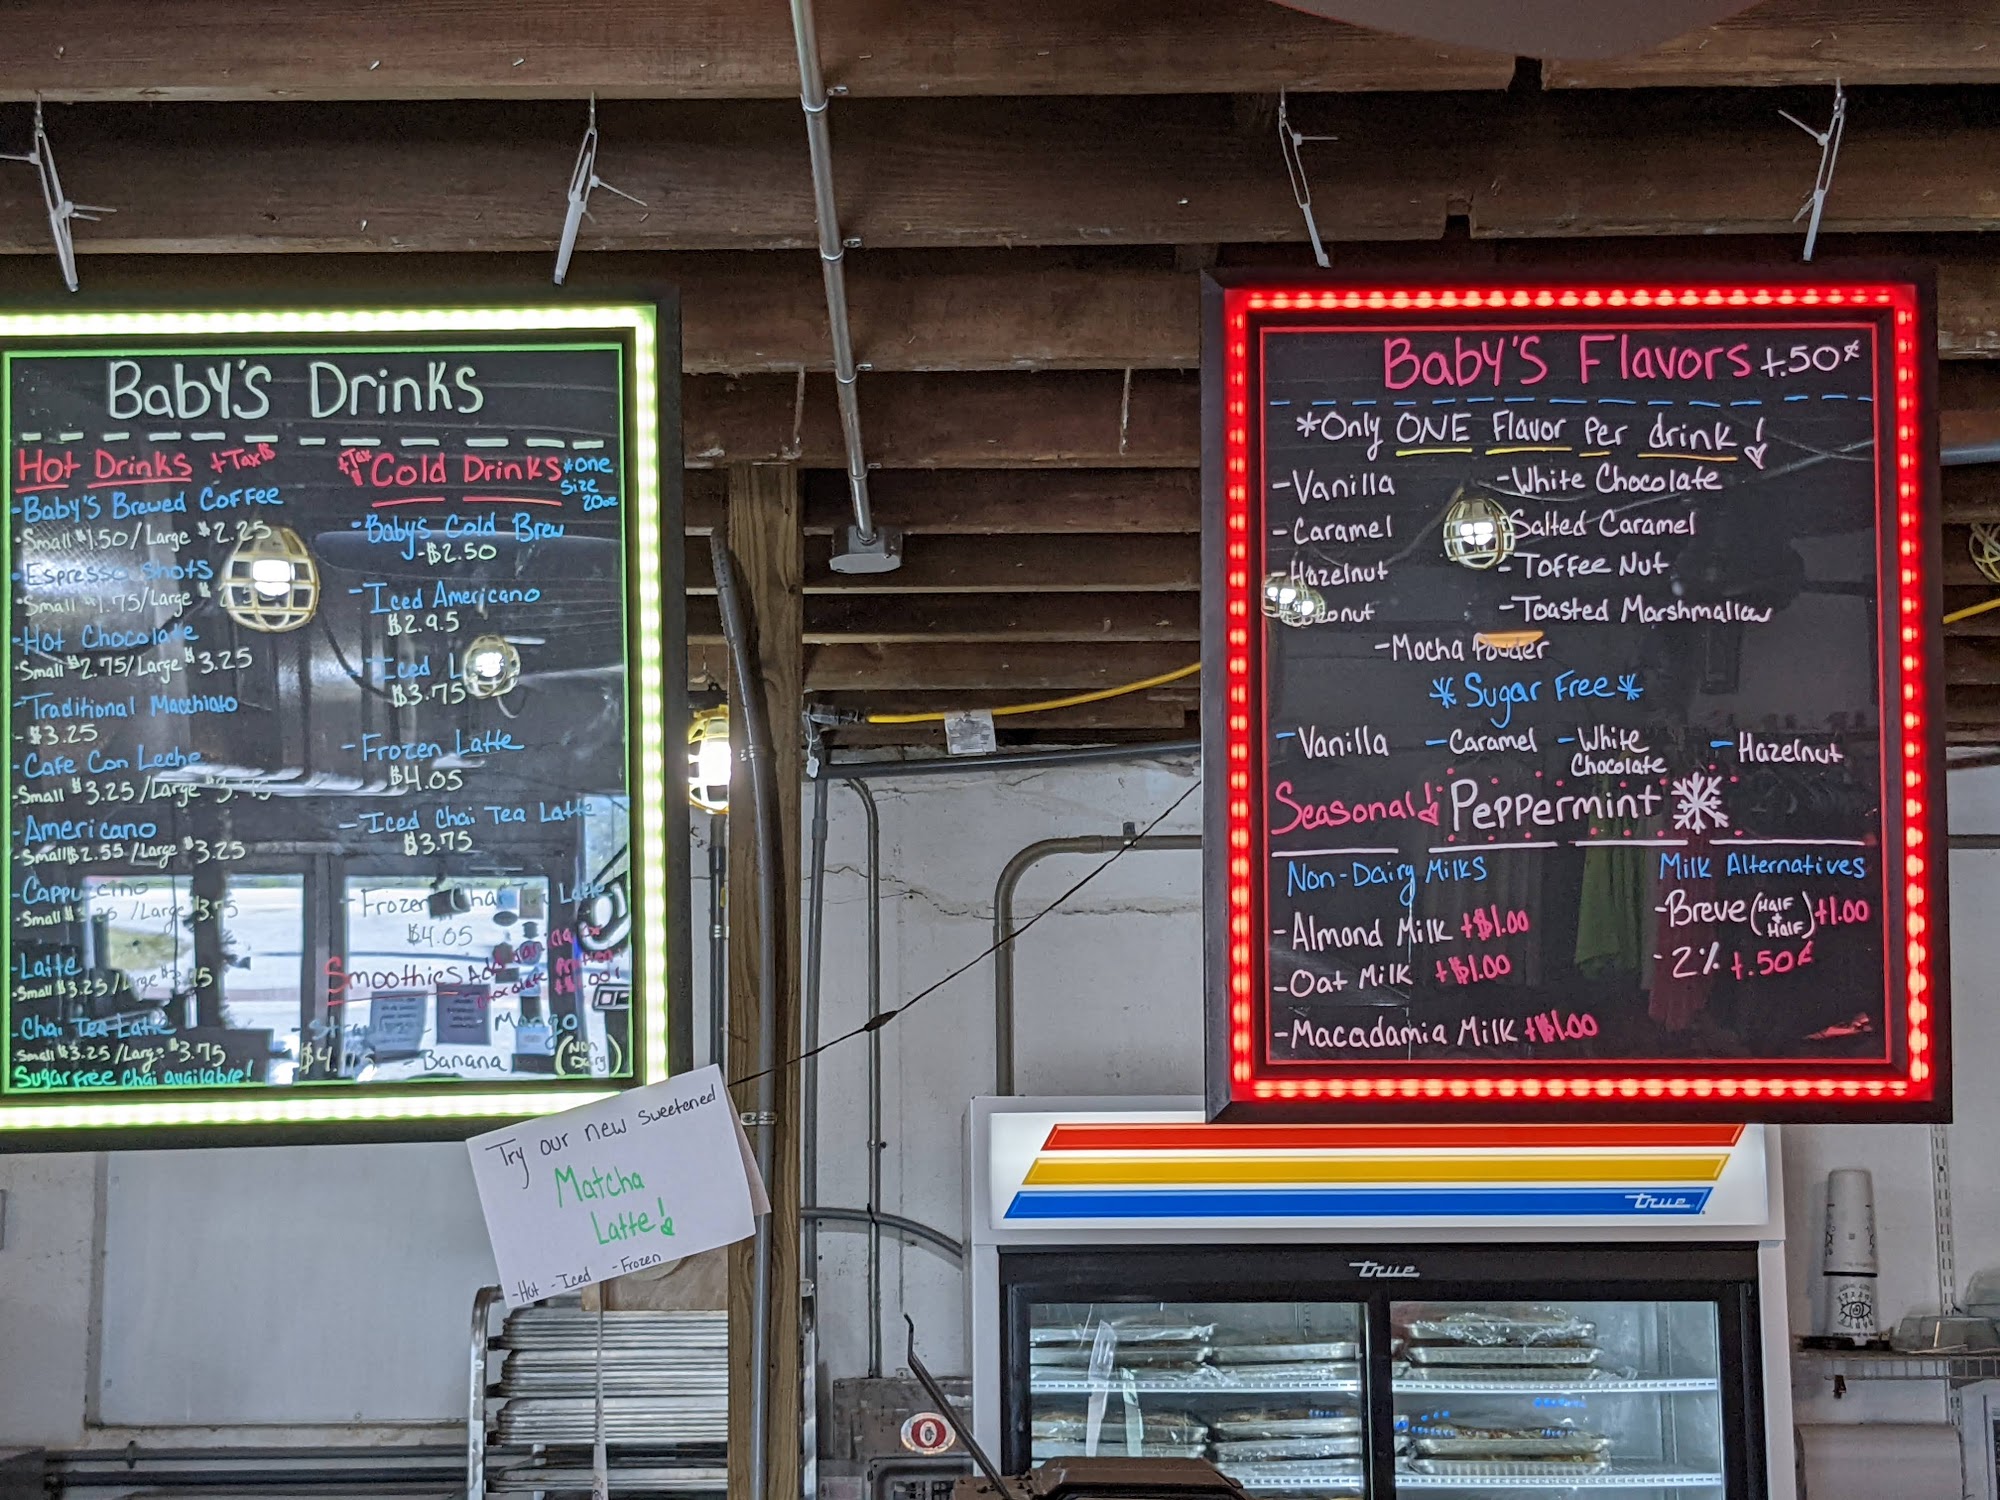 Baby's Drinks
Hot Drinks +Tax
-Baby's Brewed Coffee
•Small $1.50/Large $2.25
-Espresso Shots
•Small $1.75/Large $
-Hot Chocolate
•Small $2.75/Large $3.25
-Traditional Macchiato
-$3.25
-Cafe Con Leche
•Small $3.25/Large
-Americano
•Small $2.55/Large $3.25
-Cappuccino
•Small /Large
-Latte
•Small $3.25/Large
-Chai Tea Latte
Small $3.25/Large $3.75
Sugar Free Chai available!
+Tax Cold Drinks *One
Size
20oz
-Baby's Cold Brew
-$2.50
-Iced Americano
$2.95
-Iced
$3.75
-Frozen Latte
$4.05
-Iced Chai Tea Latte
$3.75
-Frozen Chai Tea Latte
$4.05
Smoothies
Mango
-Banana
(Non
Dairy)
Try our new sweetened
Matcha
Latte!
-Hot -Iced -Frozen
Baby's Flavors +.50¢
*Only ONE Flavor Per drink!
-Vanilla -White Chocolate
-Caramel Salted Caramel
-Hazelnut -Toffee Nut
Coconut -Toasted Marshmallow
-Mocha Powder
*Sugar Free*
-Vanilla -Caramel -White
Chocolate -Hazelnut
Seasonal! Peppermint
Non-Dairy Milks
-Almond Milk +$1.00
-Oat Milk +$1.00
-Macadamia Milk +$1.00
Milk Alternatives
-Breve (Half + Half) +1.00
-2% +.50¢
true
true